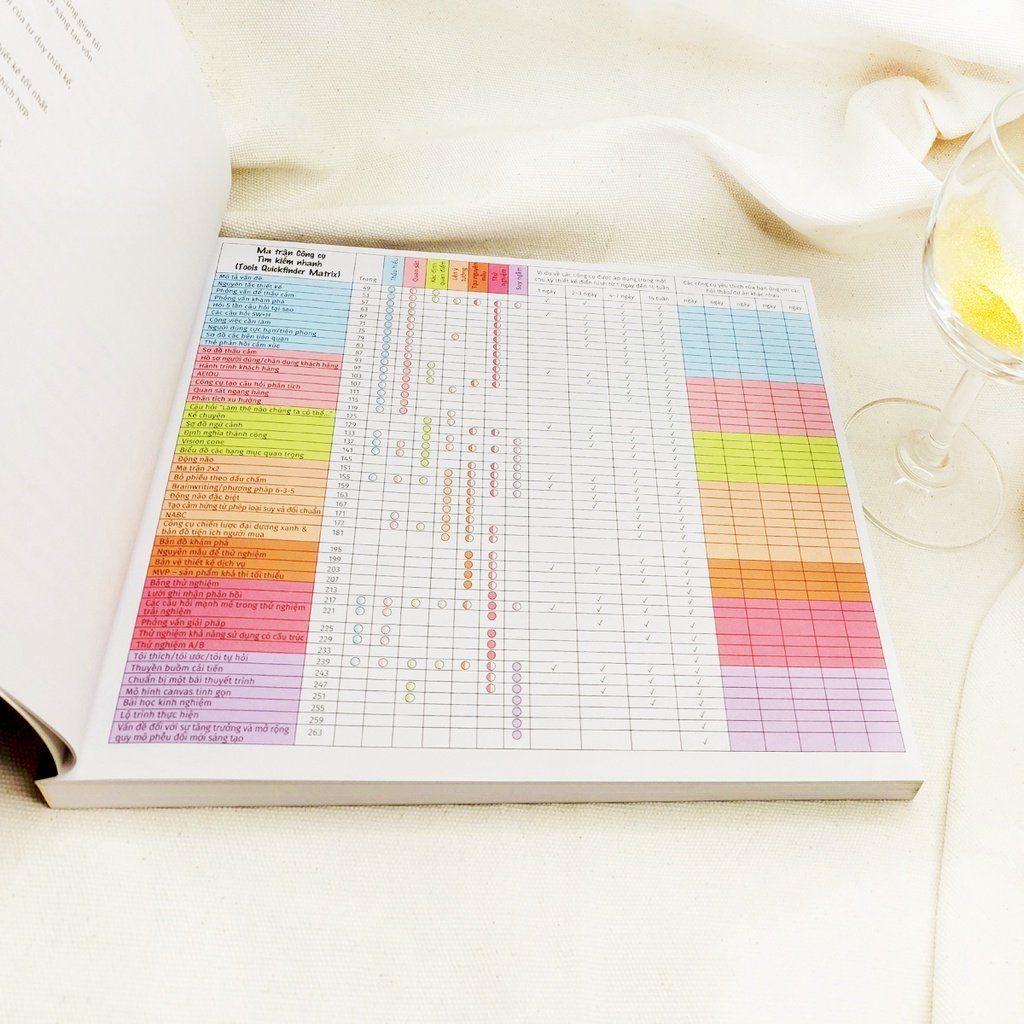 ũng giúp tôi
i sáng tạo vốn
của tư duy thiết kế,
iết kế tốt nhất
hích hợp
Ma trận Công cụ
Tìm kiếm nhanh
(Tools Quickfinder Matrix)
Trang
Thấu hiểu
Quan sát
Xác định quan điểm
Lên ý tưởng
Thử nghiệm
Suy ngẫm
Ví dụ về các công cụ được áp dụng trong một
chu kỳ thiết kế điển hình từ 1 ngày đến 16 tuần
1 ngày
2-3 ngày
4-7 ngày
16 tuần
Các công cụ yêu thích của bạn ứng với các
hội thảo/dự án khác nhau
ngày ngày ngày ngày ngày
Mô tả vấn đề
Nguyên tắc thiết kế
Phỏng vấn để thấu cảm
Phỏng vấn khám phá
Hỏi 5 lần câu hỏi tại sao
Các câu hỏi 5W+H
Công việc cần làm
Người dùng cực hạn/tiên phong
Sơ đồ các bên liên quan
Thẻ phản hồi cảm xúc
Sơ đồ thấu cảm
Hồ sơ người dùng/chân dung khách hàng
Hành trình khách hàng
AEIOU
Công cụ tạo câu hỏi phân tích
Quan sát ngang hàng
Phân tích xu hướng
Câu hỏi "Làm thế nào chúng ta có thể..."
Kể chuyện
Sơ đồ ngữ cảnh
Định nghĩa thành công
Vision cone
Biểu đồ các hạng mục quan trọng
Động não
Ma trận 2x2
Bỏ phiếu theo dấu chấm
Brainwriting/phương pháp 6-3-5
Động não đặc biệt
Tạo cảm hứng từ phép loại suy và đối chuẩn
NABC
Công cụ chiến lược đại dương xanh &
bản đồ tiện ích người mua
Bản đồ khám phá
Nguyên mẫu để thử nghiệm
Bản vẽ thiết kế dịch vụ
MVP – sản phẩm khả thi tối thiểu
Bảng thử nghiệm
Lưới ghi nhận phản hồi
Các câu hỏi mạnh mẽ trong thử nghiệm
trải nghiệm
Phỏng vấn giải pháp
Thử nghiệm khả năng sử dụng có cấu trúc
Thử nghiệm A/B
Tôi thích/tôi ước/tôi tự hỏi
Thuyền buồm cải tiến
Chuẩn bị một bài thuyết trình
Mô hình canvas tinh gọn
Bài học kinh nghiệm
Lộ trình thực hiện
Vấn đề đối với sự tăng trưởng và mở rộng
quy mô phễu đổi mới sáng tạo
49
53
57
63
67
71
75
79
83
87
93
97
103
107
111
115
119
125
129
133
137
141
145
151
155
159
163
167
171
177
181
195
199
203
207
213
217
221
225
229
233
239
243
247
251
255
259
263